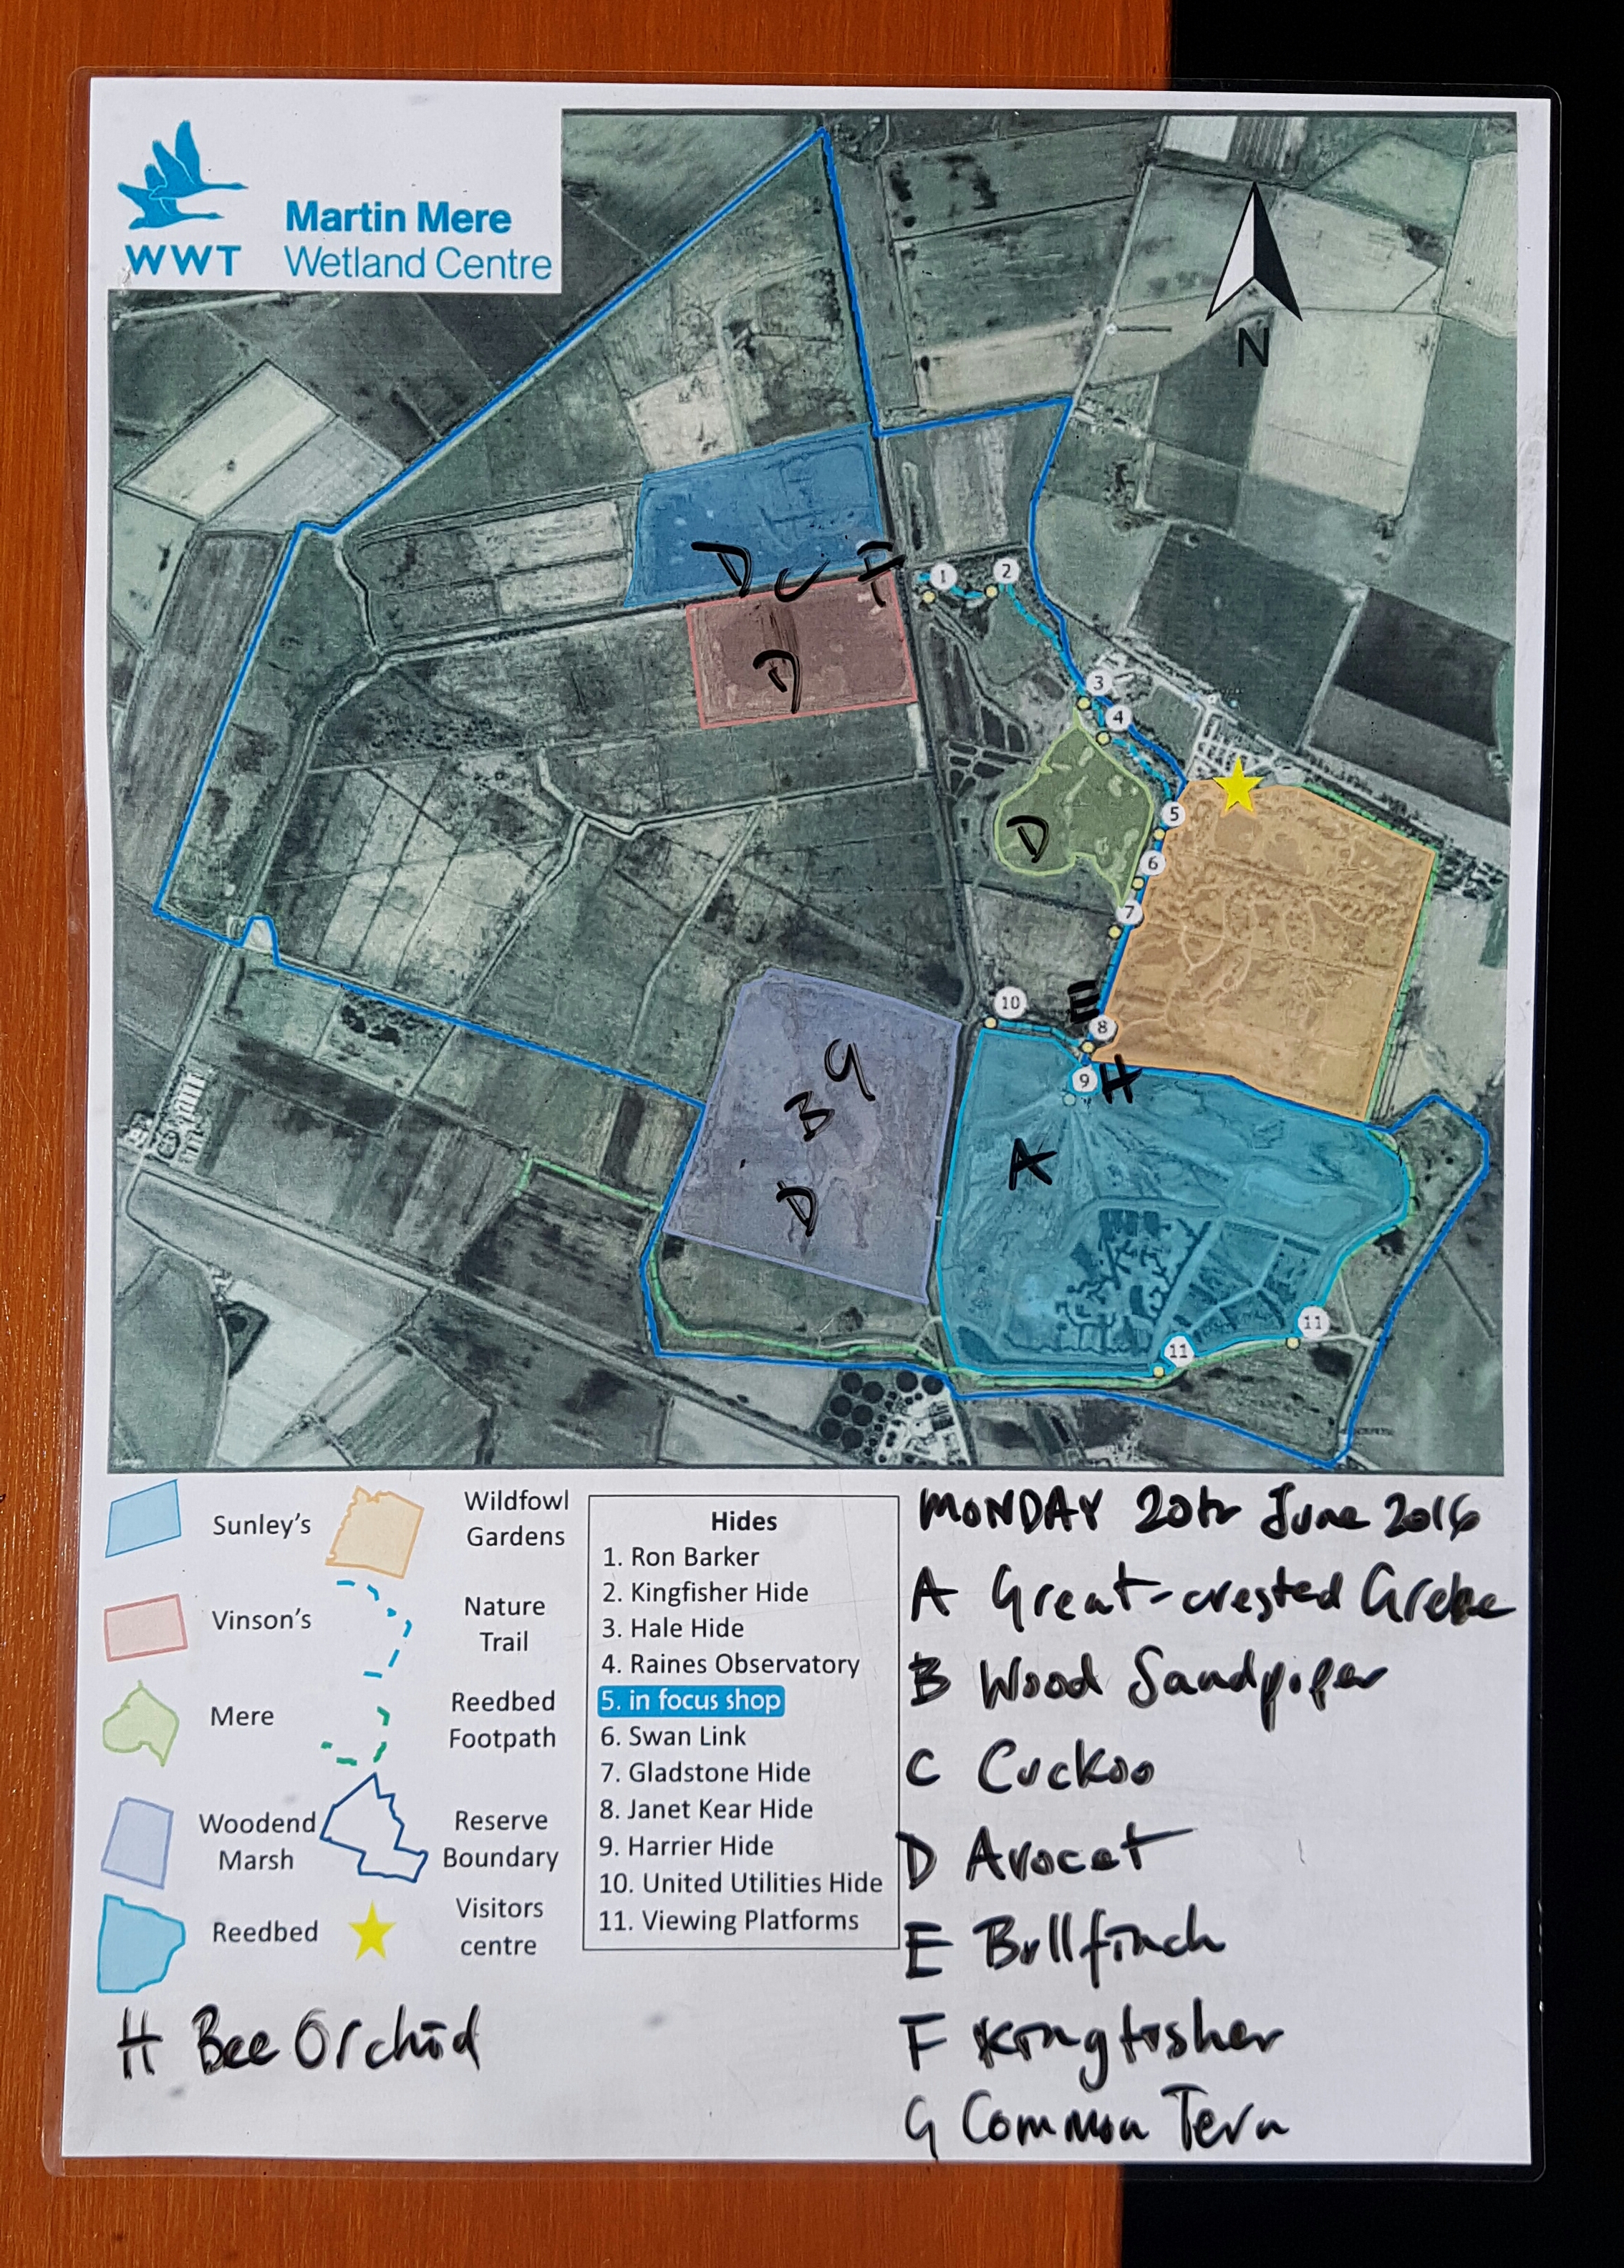 WWT
Martin Mere
Wetland Centre
N
D C F
1
2
D
3
4
D
5
6
7
E
10
8
9 H
G
B
A
D
11
11
Sunley's
Vinson's
Mere
Woodend
Marsh
Reedbed
Wildfowl
Gardens
Nature
Trail
Reedbed
Footpath
Reserve
Boundary
Visitors
centre
Hides
1. Ron Barker
2. Kingfisher Hide
3. Hale Hide
4. Raines Observatory
5. in focus shop
6. Swan Link
7. Gladstone Hide
8. Janet Kear Hide
9. Harrier Hide
10. United Utilities Hide
11. Viewing Platforms
MONDAY 20th June 2016
A Great-crested Grebe
B Wood Sandpiper
C Cuckoo
D Avocet
E Bullfinch
F Kingfisher
G Common Tern
H Bee Orchid